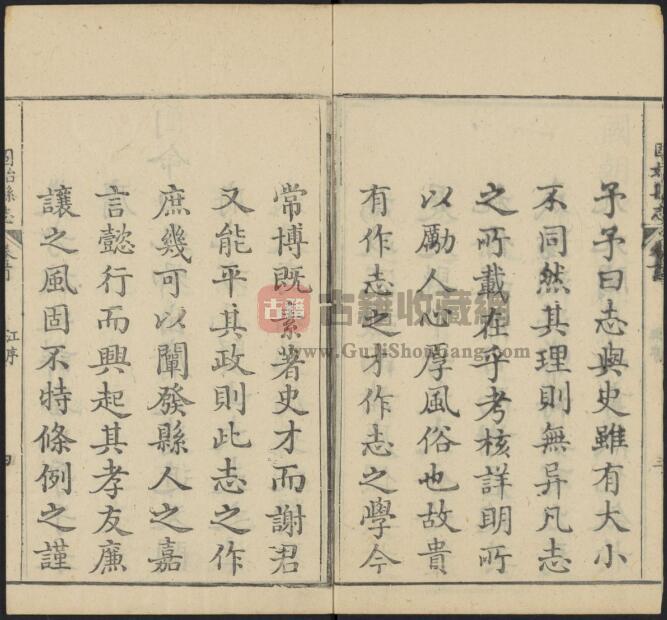 予予曰志與史雖有大小
不同然其理則無异凡志
之所載在乎考核詳明所
以勵人心厚風俗也故貴
有作志之才作志之學今
常博既素著史才而謝君
又能平其政則此志之作
庶幾可以闡發縣人之嘉
言懿行而興起其孝友廉
讓之風固不特條例之謹
固始縣志
卷首
江序
四
古籍
古籍收藏網
www.GuJiShouCang.com